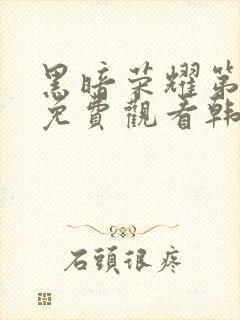 黑暗荣耀第
免費觀看韩
石頭很疼